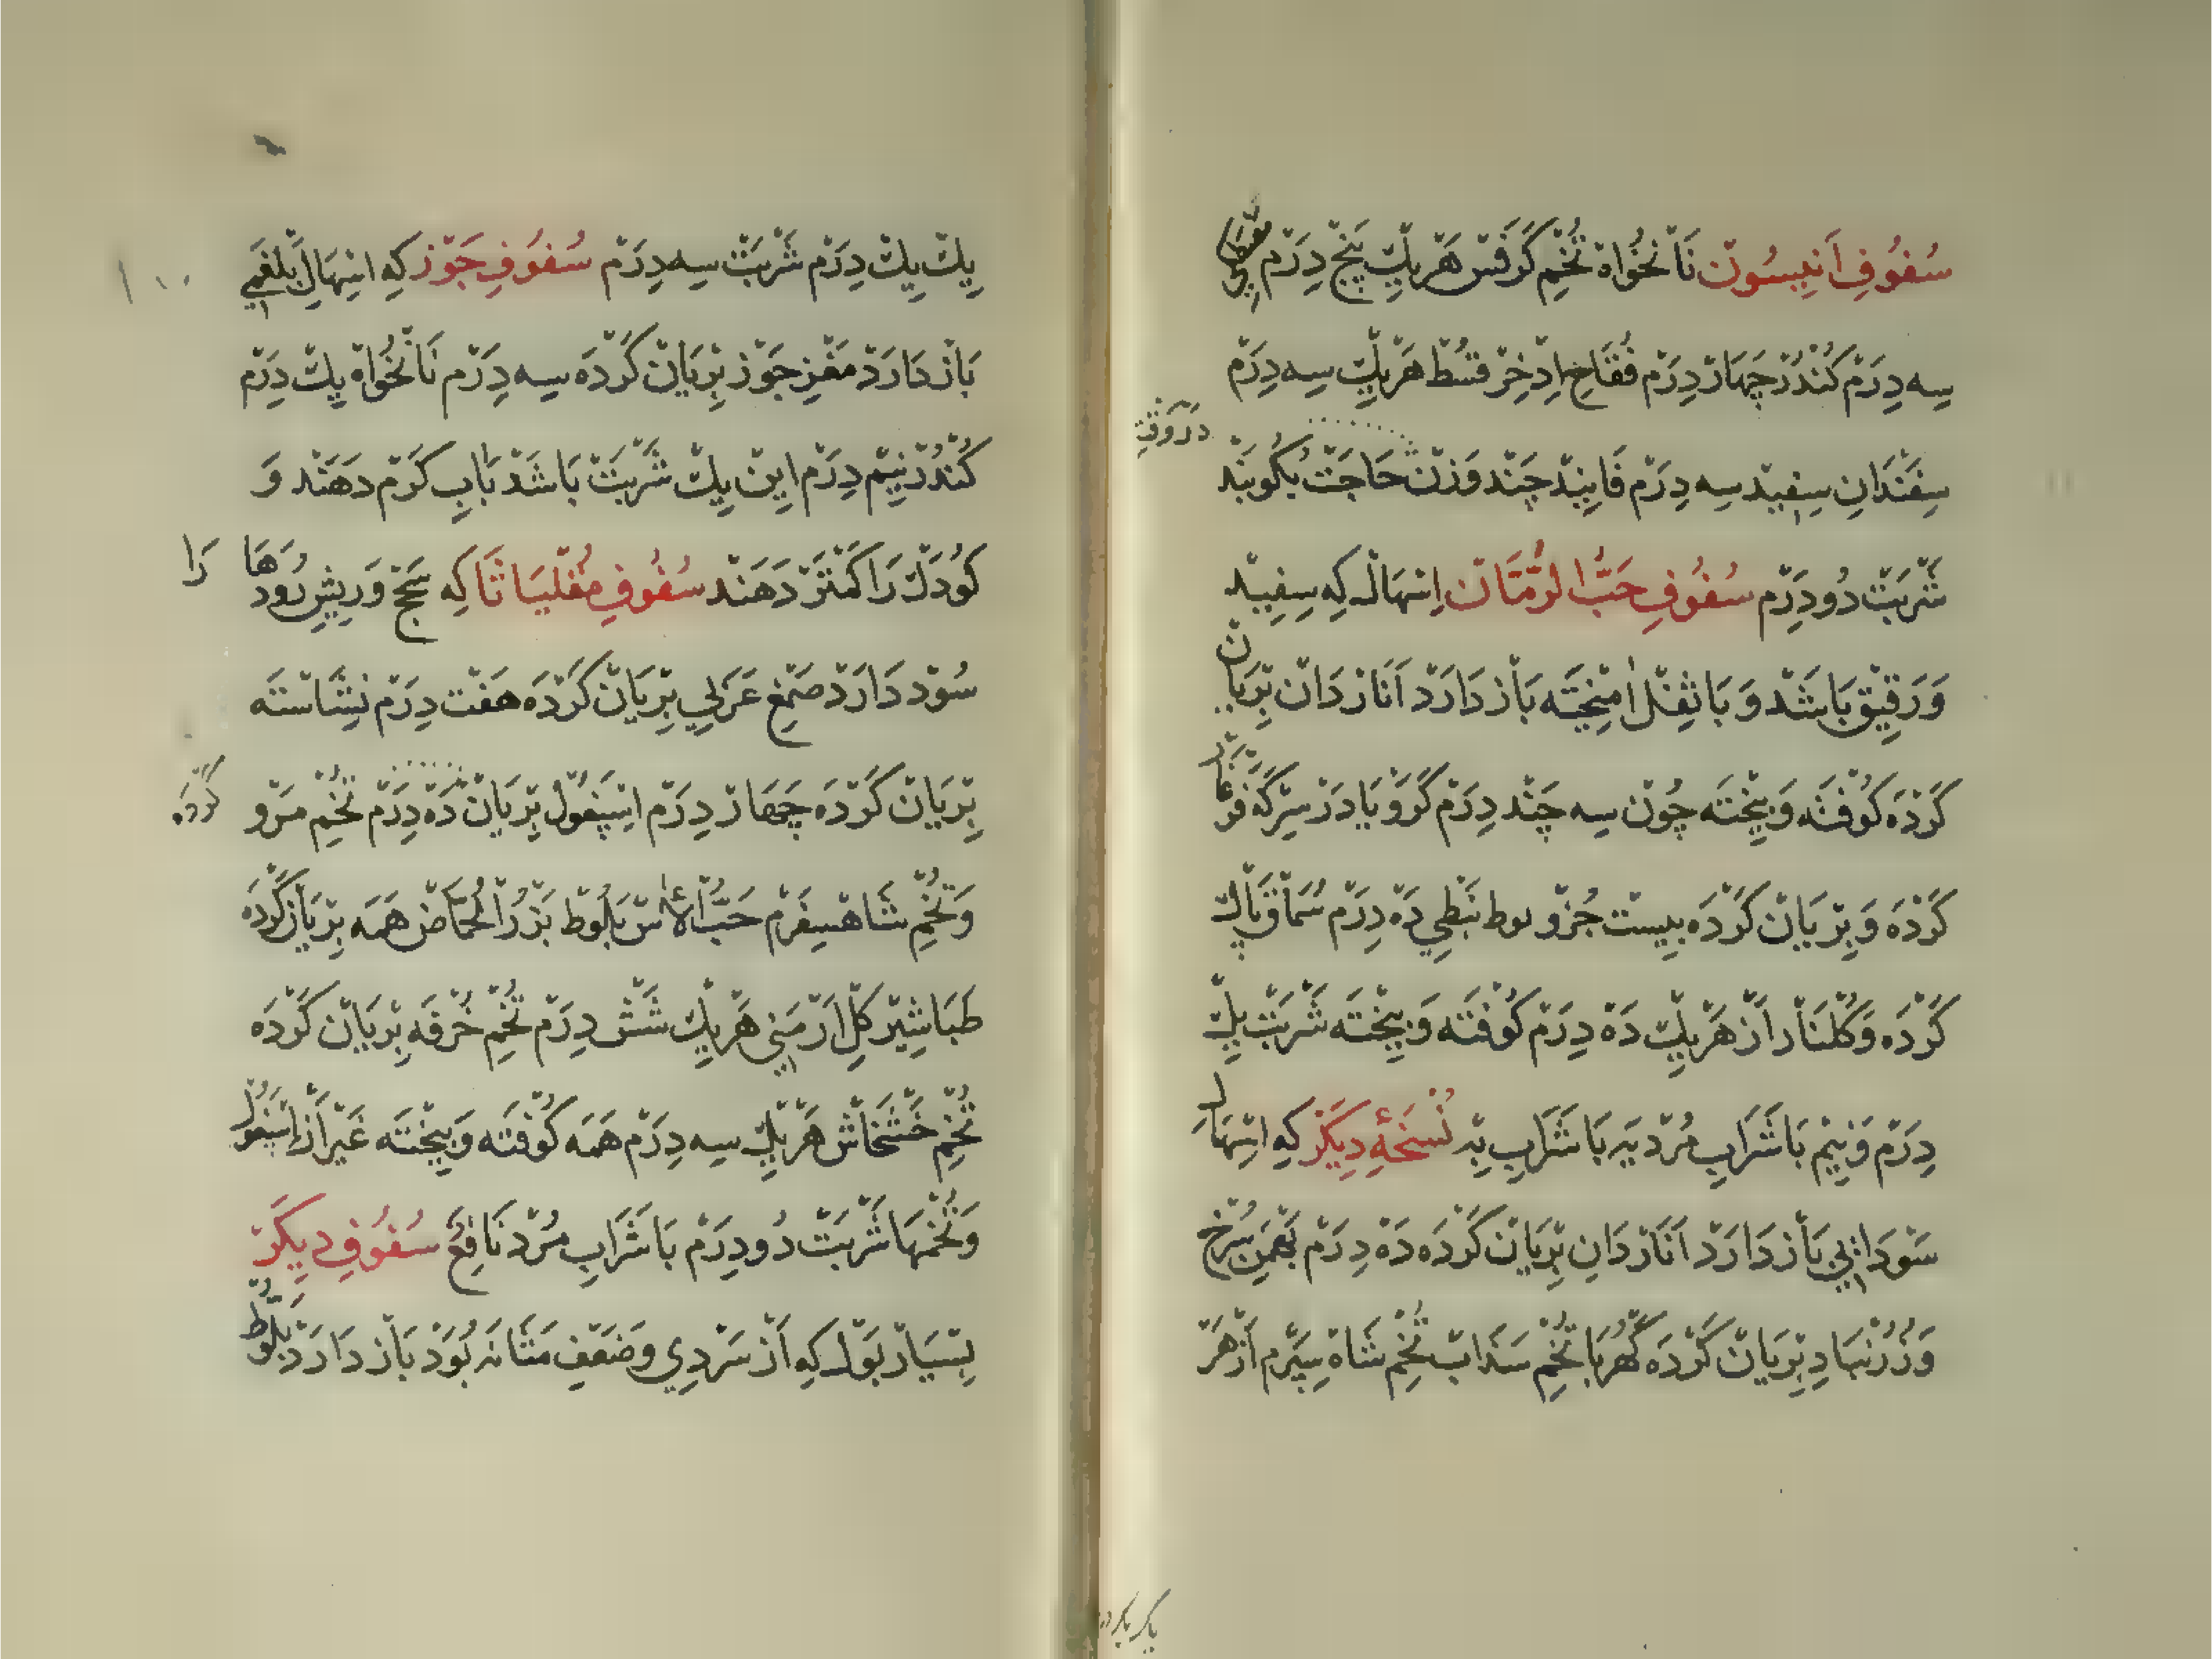 سُفُوفِ اَنِیسُونْ نَاْنْخُوَاهْ تُخْمِ کَرَفْسْ هَرْیِكْ پَنْجْ دِرَمْ
سِه دِرَمْ کُنْدُرْ چَهَارْ دِرَمْ فُقَّاحِ اِذْخِرْ قُسْطْ هَرْیِكْ سِه دِرَمْ
سِفَنْدَانِ سِفِیْدْ سِه دِرَمْ فَانِیْذْ چَنْد وَزْنْ حَاجَتْ بُکُوبَنْد
شَرْبَتْ دُو دِرَمْ سُفُوفِ حَبُّ الرُّمَّانْ اِسْهَالْ کِه سِفِیْد
وَ رَقِیْقْ بَاشَدْ وَ بَا ثِفْلْ اٰمِیْخَتَه بَاْزْدَارَدْ اَنَارْدَانْ بِرْیَانْ
کَرْدَه کُوْفْتَه وَ بِیْخْتَه چُوْنْ سِه چَنْد دِرَمْ کَرَوْیَا دَرْ سِرْکَه
کَرْدَه وَ بِرْیَانْ کَرْدَه بِیسْتْ جُزْو نَبْطِي دَهْ دِرَمْ سُمَاْقِ پَاْكْ
کَرْدَه وَ کُلْنَاْر اَزْ هَرْیِكْ دَهْ دِرَمْ کُوْفْتَه وَ بِیْخْتَه شَرْبَتْ یِكْ
دِرَمْ وَ نِیْمْ بَا شَرَابِ مُرْد یَه بَا شَرَابِ بِهْ نُسْخَهٔ دِیکَرْ کِه اِسْهَالِ
سَوْدَایِي بَاْزْدَارَدْ اَنَارْدَانِ بِرْیَانْ کَرْدَه دَهْ دِرَمْ بَهْمَنِ سُرْخْ
وَ زُرُنْبَادِ بِرْیَانْ کَرْدَه کَهْرُبَا تُخْمِ سَدَابْ تُخْمِ شَاهْ سِپَرَم اَزْ هَرْ
یِكْ یِكْ دِرَمْ شَرْبَتْ سِه دِرَمْ سُفُوفِ جَوْز کِه اِسْهَالِ بَلْغَمِي
بَاْزْدَارَدْ مَغْزِ جَوْزِ بِرْیَانْ کَرْدَه سِه دِرَمْ نَاْنْخُوَاهْ یِكْ دِرَمْ
کُنْدُرْ نِیْمْ دِرَمْ اِینْ یِكْ شَرْبَتْ بَاشَدْ بَابِ کَرَمْ دَهَنْد وَ
کُوْدَكْ رَا کَمْتَرْ دَهَنْد سُفُوفِ مُقْلِیَاثَا کِه سَحْجْ وَ رِیشِ رُودَهَا رَا
سُوْد دَارَدْ صَمْغِ عَرَبِي بِرْیَانْ کَرْدَه هَفْت دِرَمْ نِشَاسْتَه
بِرْیَانْ کَرْدَه چَهَارْ دِرَمْ اِسْپَغُوْلْ بِرْیَانْ کَرْدَه دَهْ دِرَمْ تُخْمِ مَرْو
وَ تُخْمِ شَاهْسِفَرَمْ حَبُّ الْاٰسْ بَلُوطْ بَزْرُ الْحُمَّاضْ هَمَه بِرْیَاْنْ کَرْدَه
طَبَاشِیْر کِلِ اَرْمَنِي هَرْیِكْ شَشْ دِرَمْ تُخْمِ خُرْفَه بِرْیَانْ کَرْدَه
تُخْمِ خَشْخَاْشْ هَرْیِكْ سِه دِرَمْ هَمَه کُوْفْتَه وَ بِیْخْتَه غَیْرْ اَزْ اِسْپَغُوْل
وَ تُخْمهَا شَرْبَتْ دُو دِرَمْ بَا شَرَابِ مُرْد نَافِعْ سُفُوفِ دِیکَرْ
بِسْیَارْ بَوْل کِه اَزْ سَرْدِي وَ ضَعْفِ مَثَانَه بُوَدْ بَاْزْدَارَدْ بَلُّوط